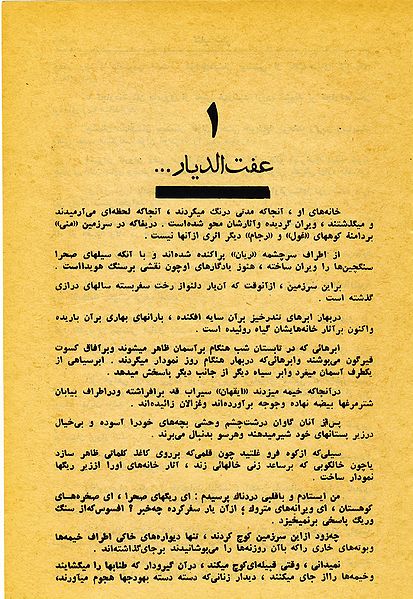 ۱
عفت‌الدیار...
خانه‌های او ، آنجاکه مدتی درنگ میکردند ، آنجاکه لحظه‌ای می‌آرمیدند
و میگذشتند ، ویران گردیده وآثارشان محو شده‌است . دریغاکه در سرزمین «منی»
بردامنهٔ کوههای «غول» و «رجام» دیگر اثری ازآنها نیست .
از اطراف سرچشمه «ریان» پراکنده شده‌اند و با آنکه سیلهای صحرا
سنگچین‌ها را ویران ساخته ، هنوز یادگارهای اوچون نقشی برسنگ هویدااست .
براین سرزمین ، ازآنوقت که آن‌یار دلنواز رخت سفربسته سالهای درازی
گذشته است .
دربهار ابرهای تندرخیز برآن سایه افکنده ، بارانهای بهاری برآن باریده
واکنون برآثار خانه‌هایشان گیاه روئیده است .
ابرهائی که در تابستان شب هنگام برآسمان ظاهر میشوند وبرآفاق کسوت
قیرگون می‌پوشند وابرهائی‌که دربهار هنگام روز نمودار میگردند . ابرسیاهی از
یکطرف آسمان میغرد وابر سیاه دیگر از جانب دیگر باسخش میدهد .
درآنجاکه خیمه میزدند «ایقهان» سیراب قد برافراشته ودراطراف بیابان
شترمرغها بیضه نهاده وجوجه برآورده‌اند وغزالان زائیده‌اند .
پس‌از آنان گاوان درشت‌چشم وحشی بچه‌های خودرا آسوده و بی‌خیال
درزیر پستانهای خود شیرمیدهند وهرسو بدنبال می‌برند .
سیلی‌که ازکوه فرو غلتید چون قلمی‌که برروی کاغذ کلماتی ظاهر سازد
یاچون خالکوبی که برساعد زنی خالهائی زند ، آثار خانه‌های اورا اززیر ریگها
نمودار ساخت .
من ایستادم و باقلبی دردناك پرسیدم : ای ریگهای صحرا ، ای صخره‌های
کوهستان ، ای ویرانه‌های متروك ، ازآن یار سفرکرده چه‌خبر ؟ افسوس‌که‌از سنگ
وریگ پاسخی برنمیخیزد .
چه‌زود ازاین سرزمین کوچ کردند ، تنها دیواره‌های خاکی اطراف خیمه‌ها
وبوته‌های خاری راکه باآن روزنه‌ها را می‌پوشانیدند برجای‌گذاشته‌اند .
نمیدانی ، وقتی قبیله‌ای‌کوچ میکند ، درآن گیرودار که طنابها را میگشایند
وخیمه‌ها رااز جای میکنند ، دیدار زنانی‌که دسته دسته بهودجها هجوم میآورند،